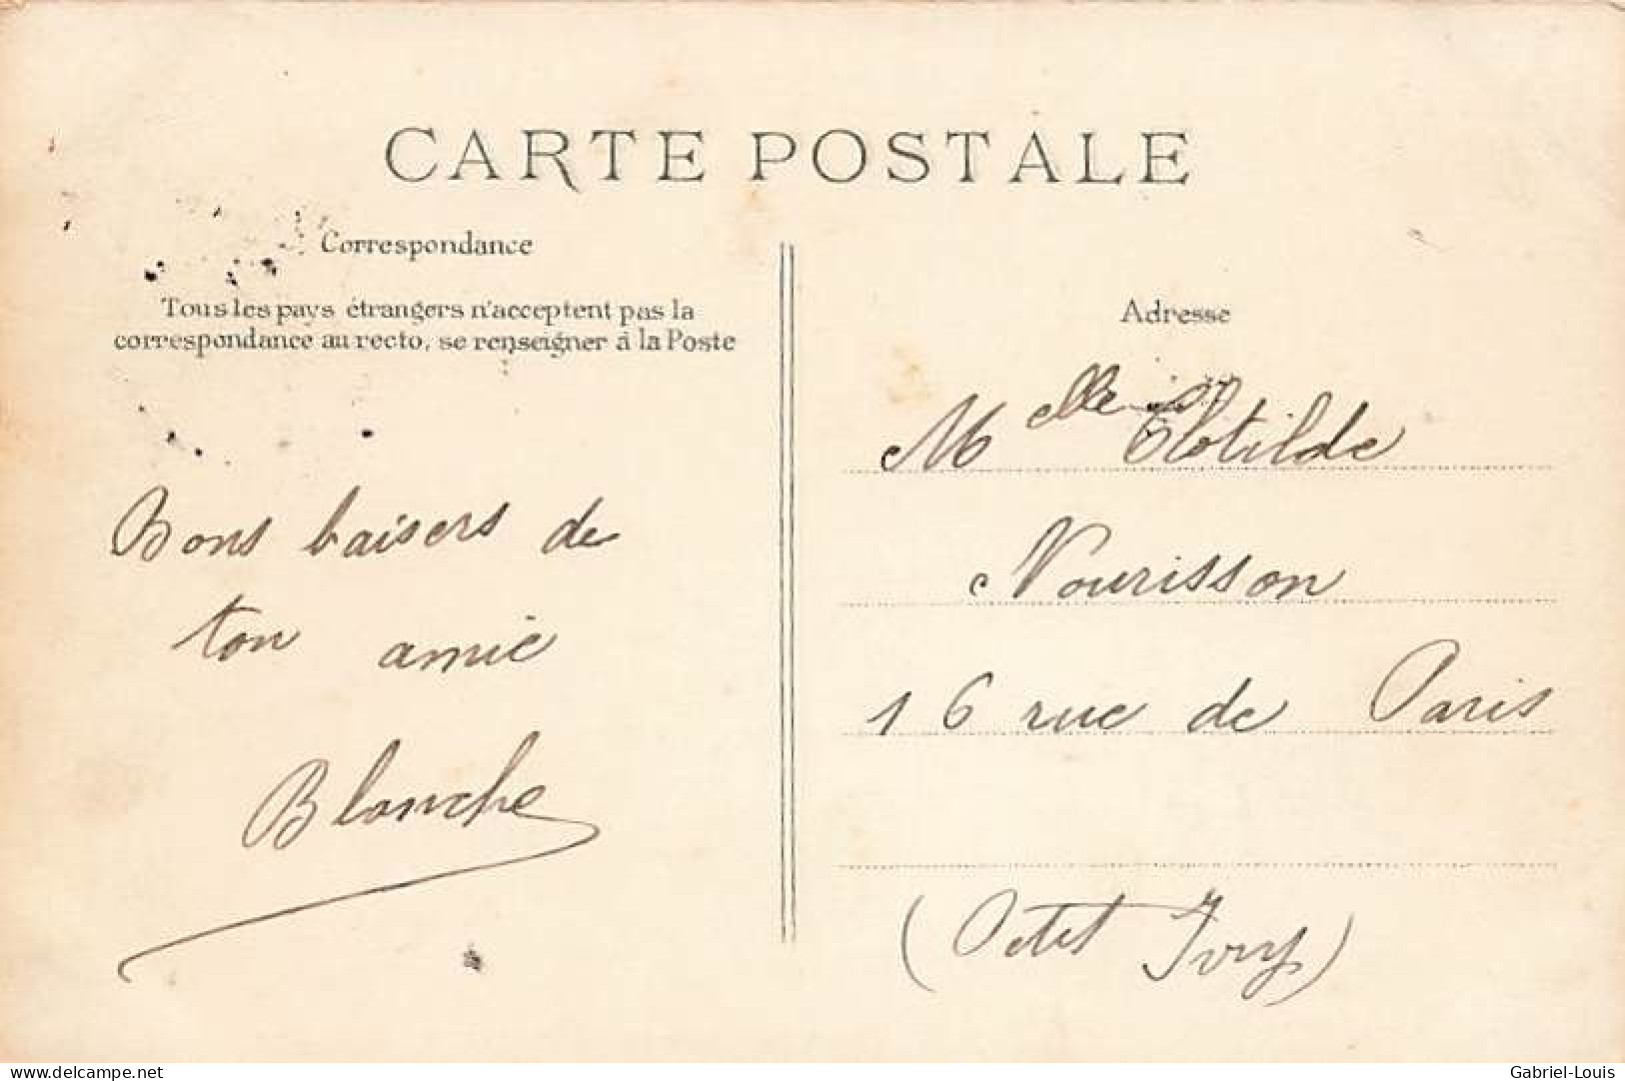 CARTE POSTALE
Correspondance
Tous les pays étrangers n'acceptent pas la
correspondance au recto, se renseigner à la Poste
Bons baisers de
ton amie
Blanche
Adresse
Melle Clotilde
Nourisson
16 rue de Paris
(Petit Ivry)
delcampe.net
Gabriel-Louis